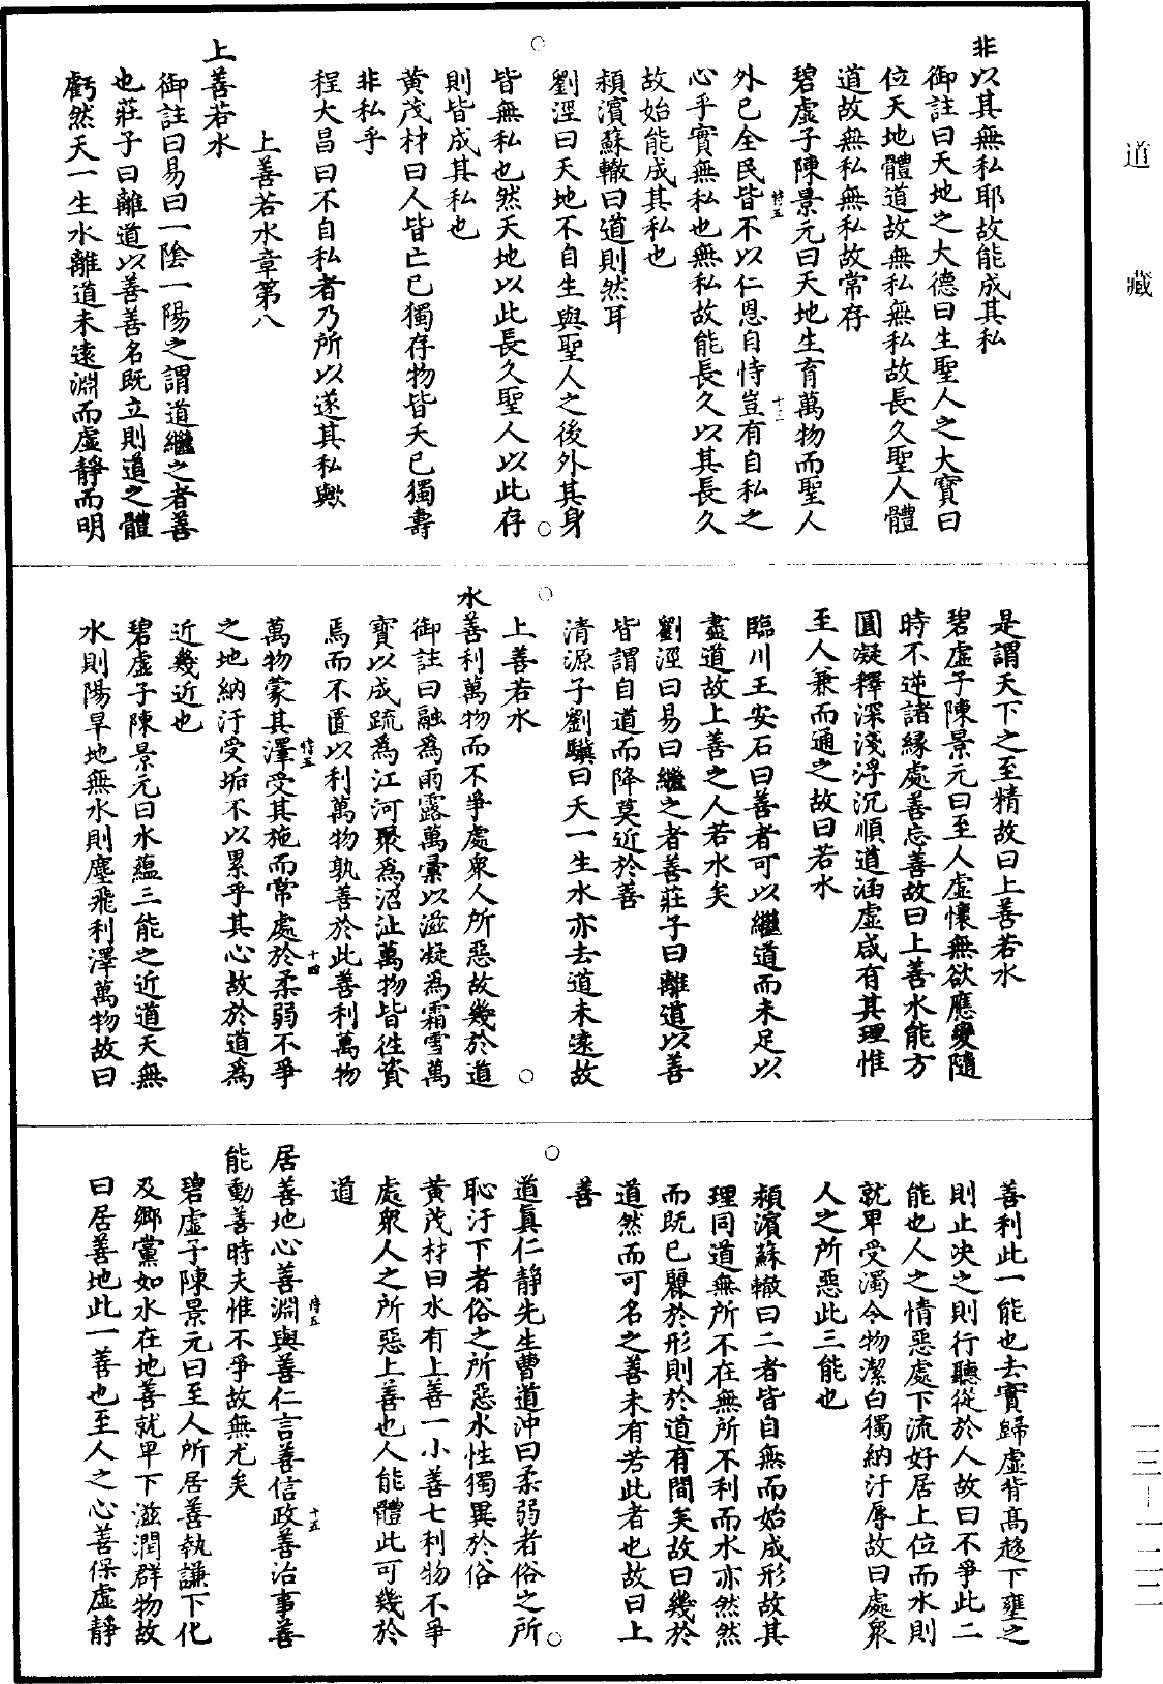 道藏
非以其無私耶故能成其私
御註曰天地之大德曰生聖人之大寶曰
位天地體道故無私無私故長久聖人體
道故無私無私故常存
碧虛子陳景元曰天地生育萬物而聖人
外已全民皆不以仁恩自恃豈有自私之
心乎實無私也無私故能長久以其長久
故始能成其私也
頴濱蘇轍曰道則然耳
劉涇曰天地不自生與聖人之後外其身
皆無私也然天地以此長久聖人以此存
則皆成其私也
黃茂材曰人皆亡已獨存物皆夭已獨壽
非私乎
程大昌曰不自私者乃所以遂其私歟
上善若水章第八
上善若水
御註曰易曰一陰一陽之謂道繼之者善
也莊子曰離道以善善名既立則道之體
虧然天一生水離道未遠淵而虛靜而明
是謂天下之至精故曰上善若水
碧虛子陳景元曰至人虛懷無欲應變隨
時不逆諸緣處善忘善故曰上善水能方
圓凝釋深淺浮沉順道涵虛咸有其理惟
至人兼而通之故曰若水
臨川王安石曰善者可以繼道而未足以
盡道故上善之人若水矣
劉涇曰易曰繼之者善莊子曰離道以善
皆謂自道而降莫近於善
清源子劉驥曰天一生水亦去道未遠故
上善若水
水善利萬物而不爭處衆人所惡故幾於道
御註曰融為雨露萬彙以滋凝為霜雪萬
寶以成疏為江河聚為沼沚萬物皆往資
焉而不匱以利萬物孰善於此善利萬物
萬物蒙其澤受其施而常處於柔弱不爭
之地納汙受垢不以累乎其心故於道為
近幾近也
碧虛子陳景元曰水蘊三能之近道天無
水則陽旱地無水則塵飛利澤萬物故曰
善利此一能也去實歸虛背高趍下壅之
則止决之則行聽從於人故曰不爭此二
能也人之情惡處下流好居上位而水則
就卑受濁令物潔白獨納汙辱故曰處衆
人之所惡此三能也
頴濱蘇轍曰二者皆自無而始成形故其
理同道無所不在無所不利而水亦然然
而既已麗於形則於道有間矣故曰幾於
道然而可名之善未有若此者也故曰上
善
道眞仁靜先生曹道沖曰柔弱者俗之所
恥汙下者俗之所惡水性獨異於俗
黃茂材曰水有上善一小善七利物不爭
處衆人之所惡上善也人能體此可幾於
道
居善地心善淵與善仁言善信政善治事善
能動善時夫惟不爭故無尤矣
碧虛子陳景元曰至人所居善執謙下化
及鄉黨如水在地善就卑下滋潤群物故
曰居善地此一善也至人之心善保虛靜
一三—一二二